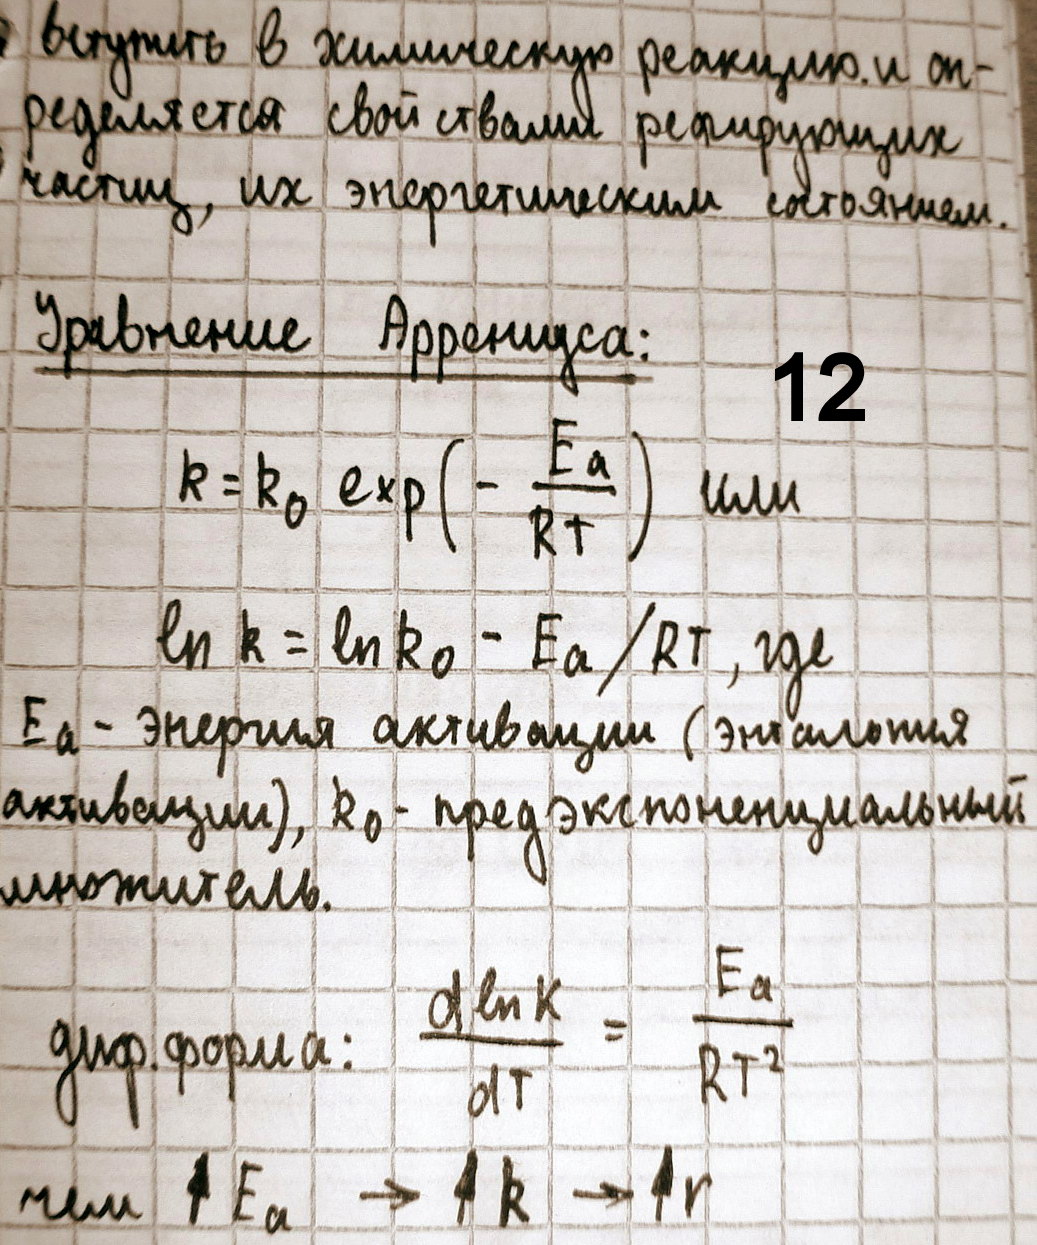 вступить в химическую реакцию и оп-
ределяется свойствами реагирующих
частиц, их энергетическим состоянием.
Уравнение Аррениуса:
12
k = k₀ exp(- Eₐ/RT) или
ln k = ln k₀ - Eₐ/RT, где
Eₐ - энергия активации (энтальпия
активации), k₀ - предэкспоненциальный
множитель.
диф. форма: d ln k / dT = Eₐ / RT²
чем ↑ Eₐ → ↑ k → ↑ r